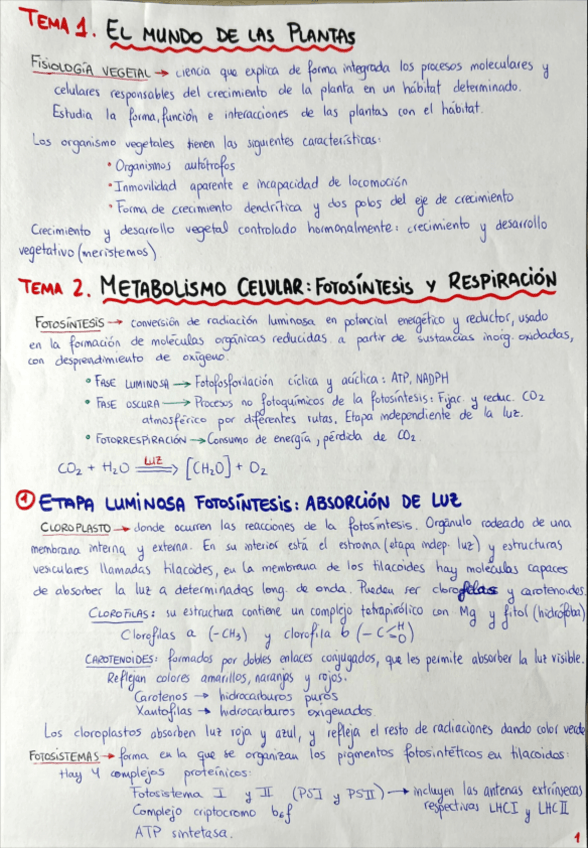 TEMA 1. EL MUNDO DE LAS PLANTAS
FISIOLOGÍA VEGETAL → ciencia que explica de forma integrada los procesos moleculares y
celulares responsables del crecimiento de la planta en un hábitat determinado.
Estudia la forma, función e interacciones de las plantas con el hábitat.
Los organismo vegetales tienen las siguientes características:
• Organismos autótrofos
• Inmovilidad aparente e incapacidad de locomoción
• Forma de crecimiento dendrítica y dos polos del eje de crecimiento
Crecimiento y desarollo vegetal controlado hormonalmente: crecimiento y desarrollo
vegetativo (meristemos)
TEMA 2. METABOLISMO CELULAR: FOTOSÍNTESIS Y RESPIRACIÓN
FOTOSÍNTESIS → conversión de radiación luminosa en potencial energético y reductor, usado
en la formación de moléculas orgánicas reducidas a partir de sustancias inorg. oxidadas,
con desprendimiento de oxígeno.
• FASE LUMINOSA → Fotofosforilación cíclica y acíclica: ATP, NADPH
• FASE OSCURA → Procesos no fotoquímicos de la fotosíntesis: Fijac. y reduc. CO2
atmosférico por diferentes rutas. Etapa independiente de la luz.
• FOTORRESPIRACIÓN → Consumo de energía, pérdida de CO2
LUZ
CO2 + H2O ⇒ [CH2O] + O2
1 ETAPA LUMINOSA FOTOSÍNTESIS: ABSORCIÓN DE LUZ
CLOROPLASTO → donde ocurren las reacciones de la fotosíntesis. Orgánulo rodeado de una
membrana interna y externa. En su interior está el estroma (etapa indep. luz) y estructuras
vesiculares llamadas tilacoides, en la membrana de los tilacoides hay moléculas capaces
de absorber la luz a determinadas long. de onda. Pueden ser clorofilas y carotenoides.
CLOROFILAS: su estructura contiene un complejo tetrapirólico con Mg y fitol (hidrófoba)
Clorofilas a (-CH3) y clorofila b (-C H O)
CAROTENOIDES: formados por dobles enlaces conjugados, que les permite absorber la luz visible.
Reflejan colores amarillos, naranjas y rojos.
Carotenos → hidrocarburos puros
Xantofilas → hidrocarburos oxigenados
Los cloroplastos absorben luz roja y azul, y refleja el resto de radiaciones dando color verde
FOTOSISTEMAS → forma en la que se organizan los pigmentos fotosintéticos en tilacoides:
Hay 4 complejos proteínicos:
Fotosistema I y II (PSI y PSII) → incluyen las antenas extrínsecas
respectivas LHCI y LHCII
Complejo criptocromo b6f
ATP sintetasa.
1